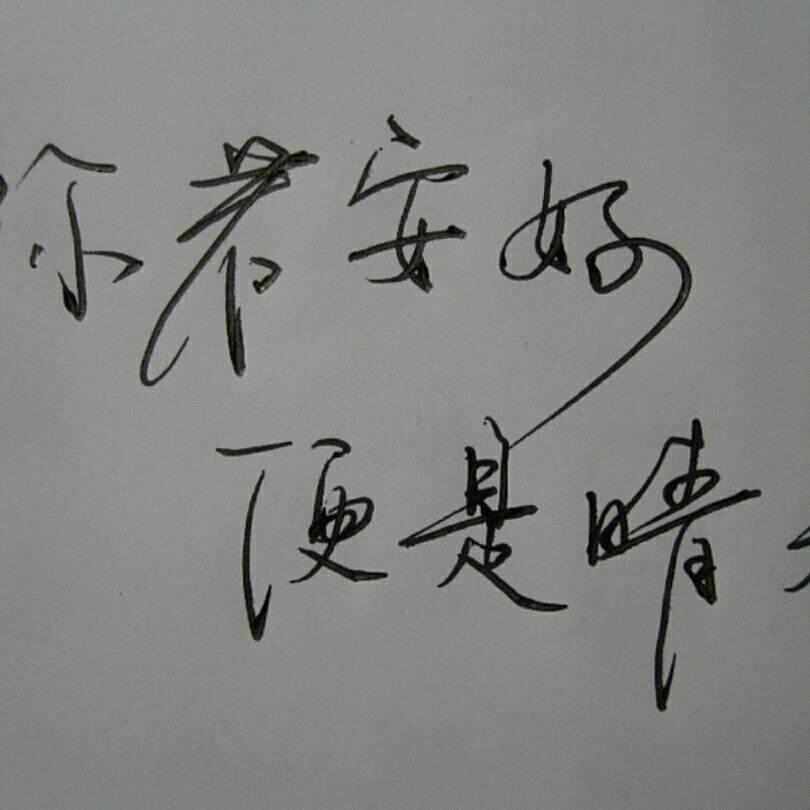 你若安好
便是晴